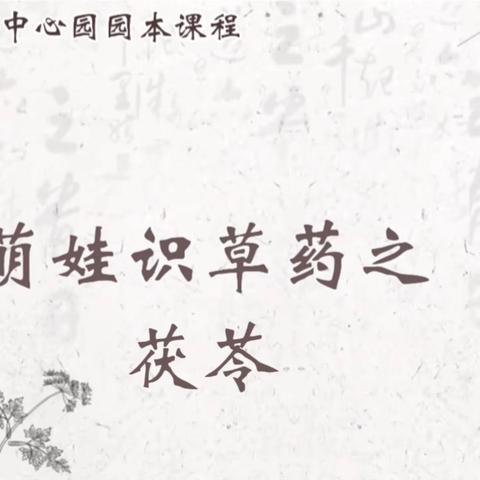 中心园园本课程
萌娃识草药之
茯苓